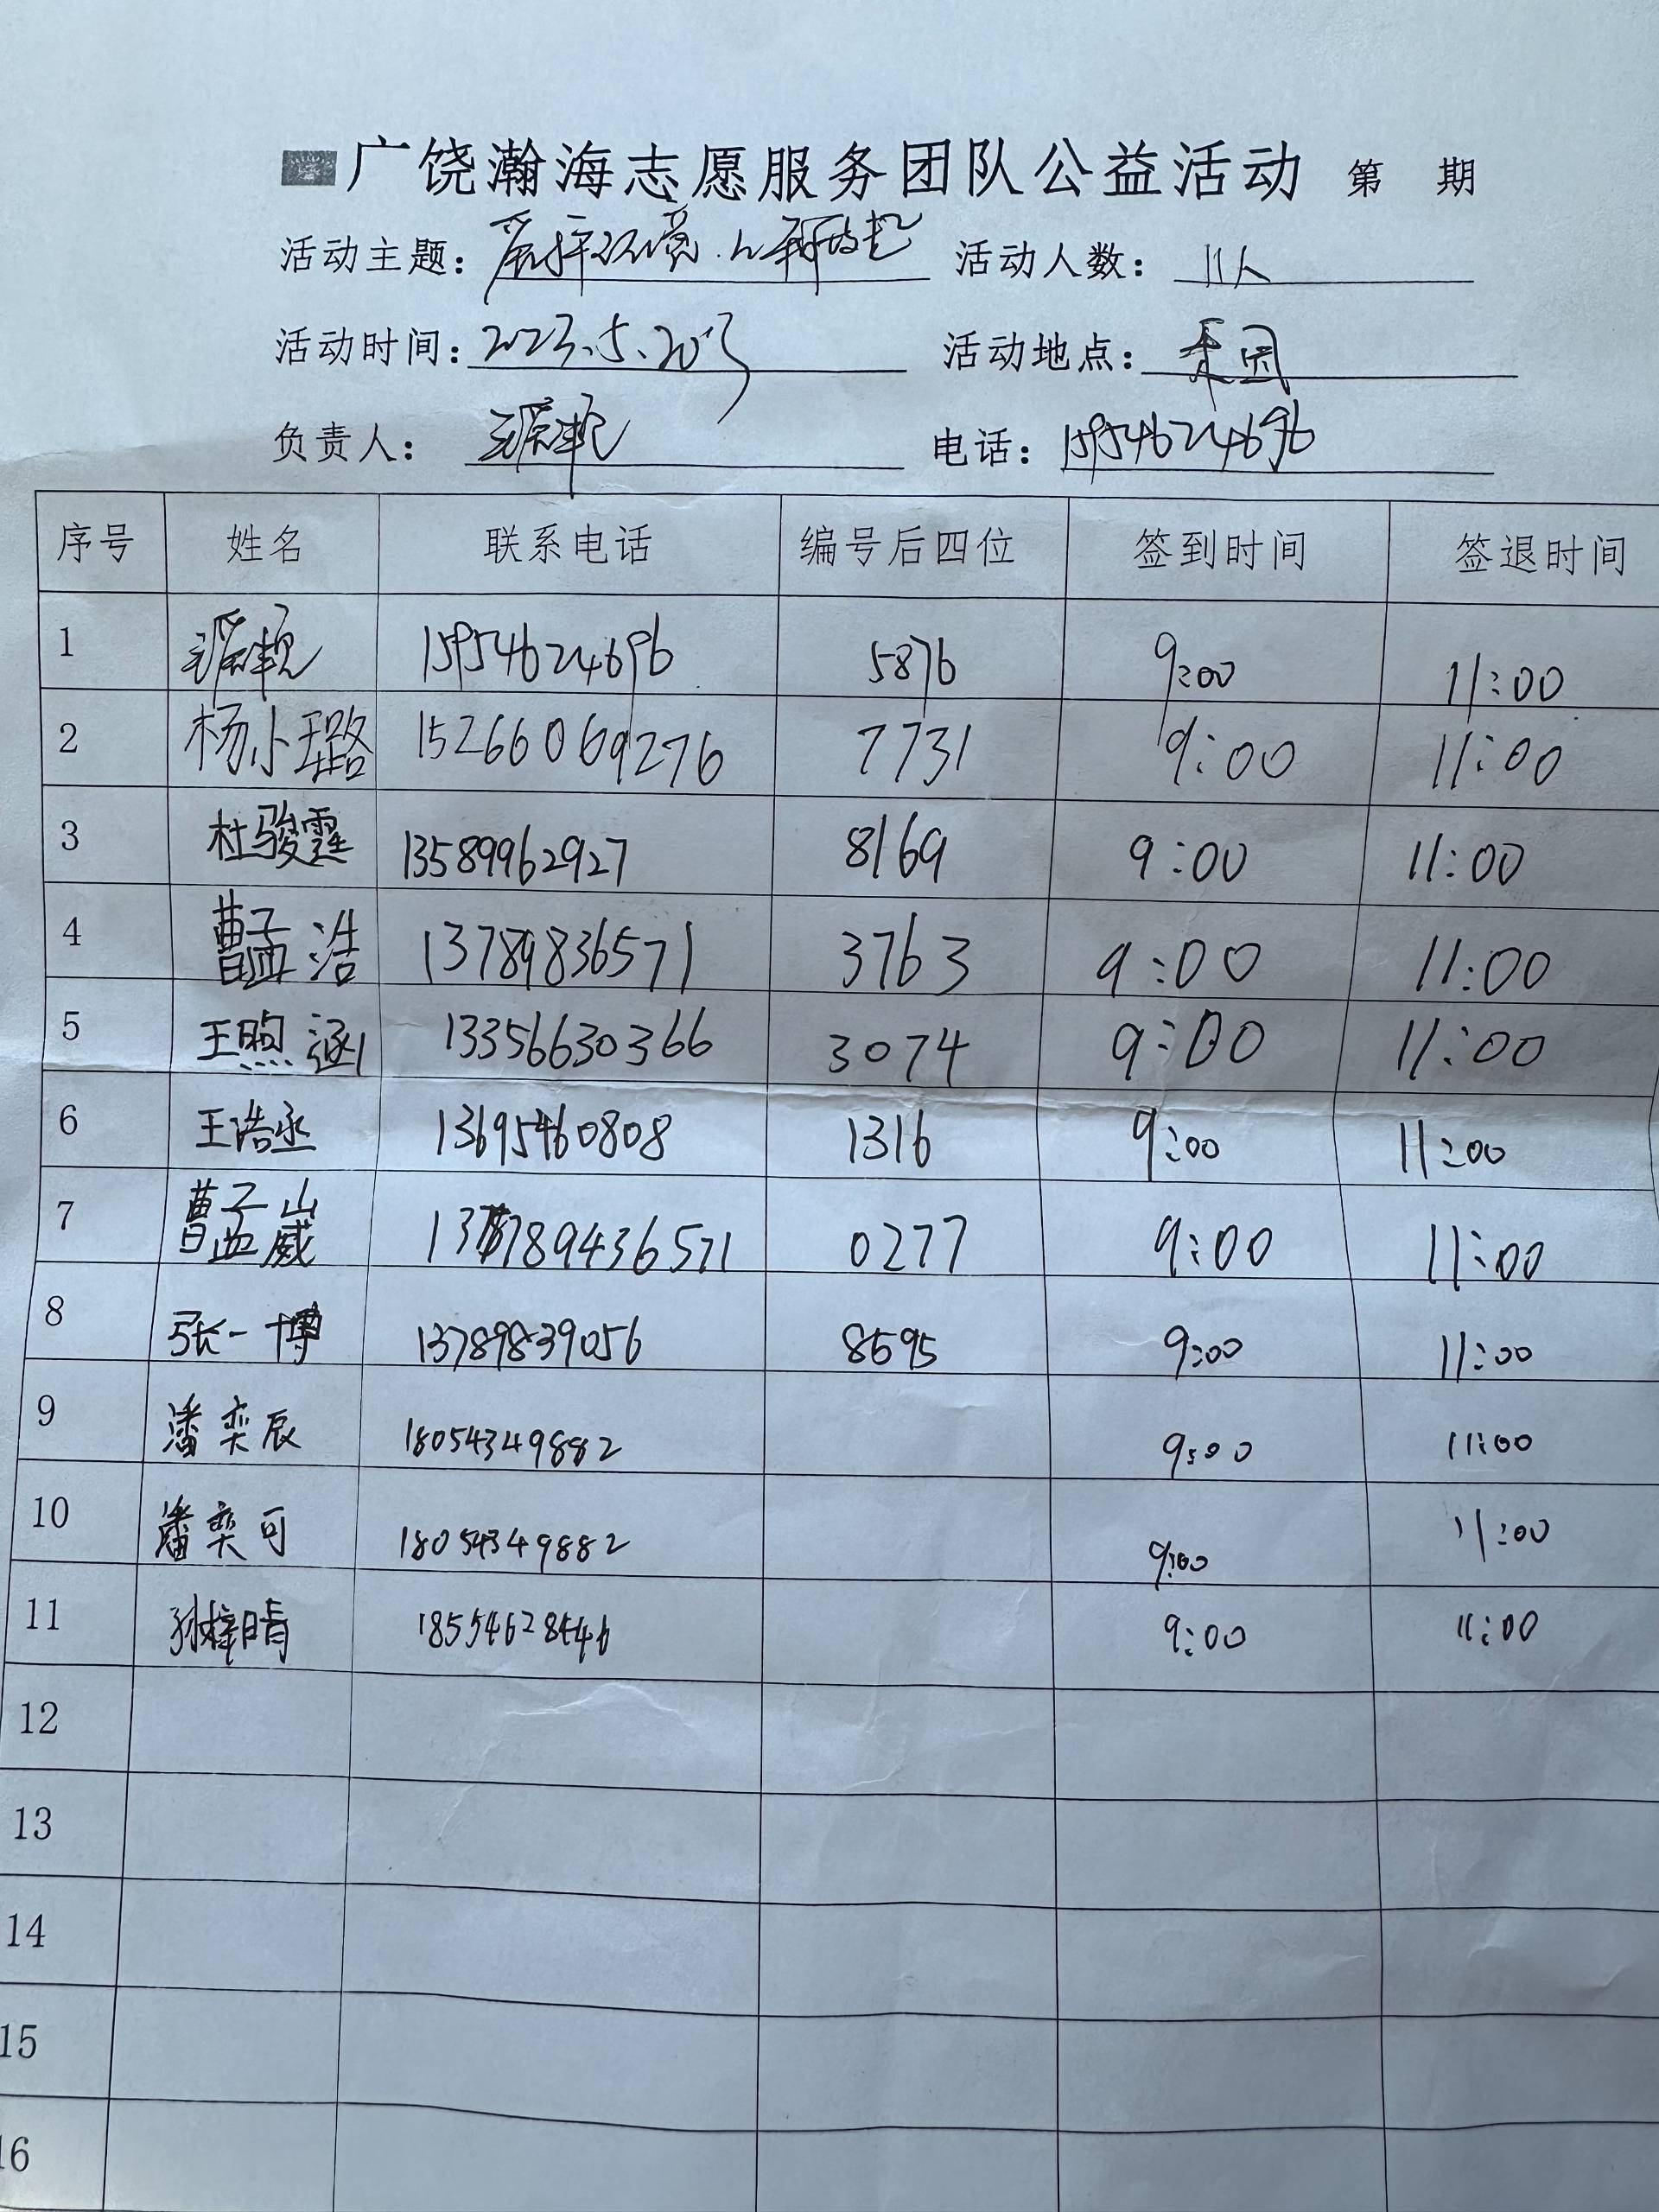 广饶瀚海志愿服务团队公益活动 第 期
活动主题: 爱护环境 从我做起 活动人数: 11人
活动时间: 2023.5.20号 活动地点: 乐园
负责人: 电话: 15954624696
序号 姓名 联系电话 编号后四位 签到时间 签退时间
1 15954624696 5876 9:00 11:00
2 杨小璐 15266069276 7731 9:00 11:00
3 杜骏霆 13589962927 8169 9:00 11:00
4 曹孟浩 13789836571 3763 9:00 11:00
5 王煦涵 13356630366 3074 9:00 11:00
6 王浩丞 13695460808 1316 9:00 11:00
7 曹孟崴 0277 9:00 11:00
8 张一博 13789839056 8695 9:00 11:00
9 潘奕辰 18054349882 9:00 11:00
10 潘奕可 18054349882 9:00 11:00
11 孙梓晴 9:00 11:00
12
13
14
15
16